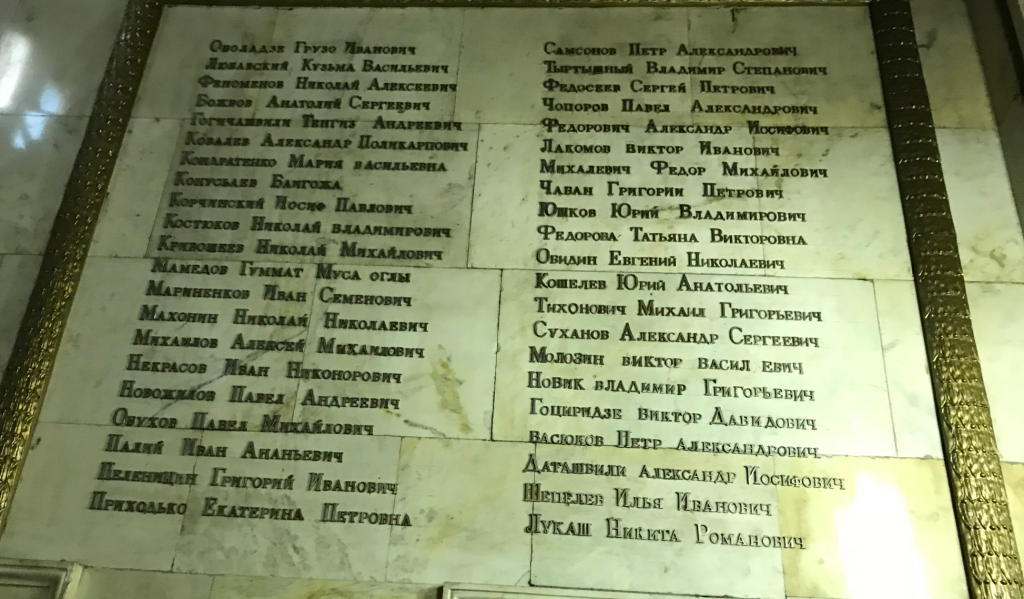 Оболадзе Грузо Иванович
Любавский Кузьма Васильевич
Феноменов Николай Алексеевич
Божков Анатолий Сергеевич
Гогичашвили Тенгиз Андреевич
Ковалев Александр Поликарпович
Кондратенко Мария Васильевна
Конусбаев Баигожа
Корчинский Иосиф Павлович
Костюков Николай Владимирович
Кривошеев Николай Михайлович
Мамедов Гуммат Муса оглы
Мариненков Иван Семенович
Махонин Николай Николаевич
Михаилов Алексей Михаилович
Некрасов Иван Никонорович
Новожилов Павел Андреевич
Обухов Павел Михайлович
Палий Иван Ананьевич
Пеленицин Григорий Иванович
Приходько Екатерина Петровна
Самсонов Петр Александрович
Тыртышный Владимир Степанович
Федосеев Сергей Петрович
Чопоров Павел Александрович
Федорович Александр Иосифович
Лакомов Виктор Иванович
Михалевич Федор Михайлович
Чабан Григории Петрович
Юшков Юрий Владимирович
Федорова Татьяна Викторовна
Овидин Евгений Николаевич
Кошелев Юрий Анатольевич
Тихонович Михаил Григорьевич
Суханов Александр Сергеевич
Молозин Виктор Васил евич
Новик Владимир Григорьевич
Гоциридзе Виктор Давидович
Васюков Петр Александрович
Даташвили Александр Иосифович
Шепелев Илья Иванович
Лукаш Никита Романович